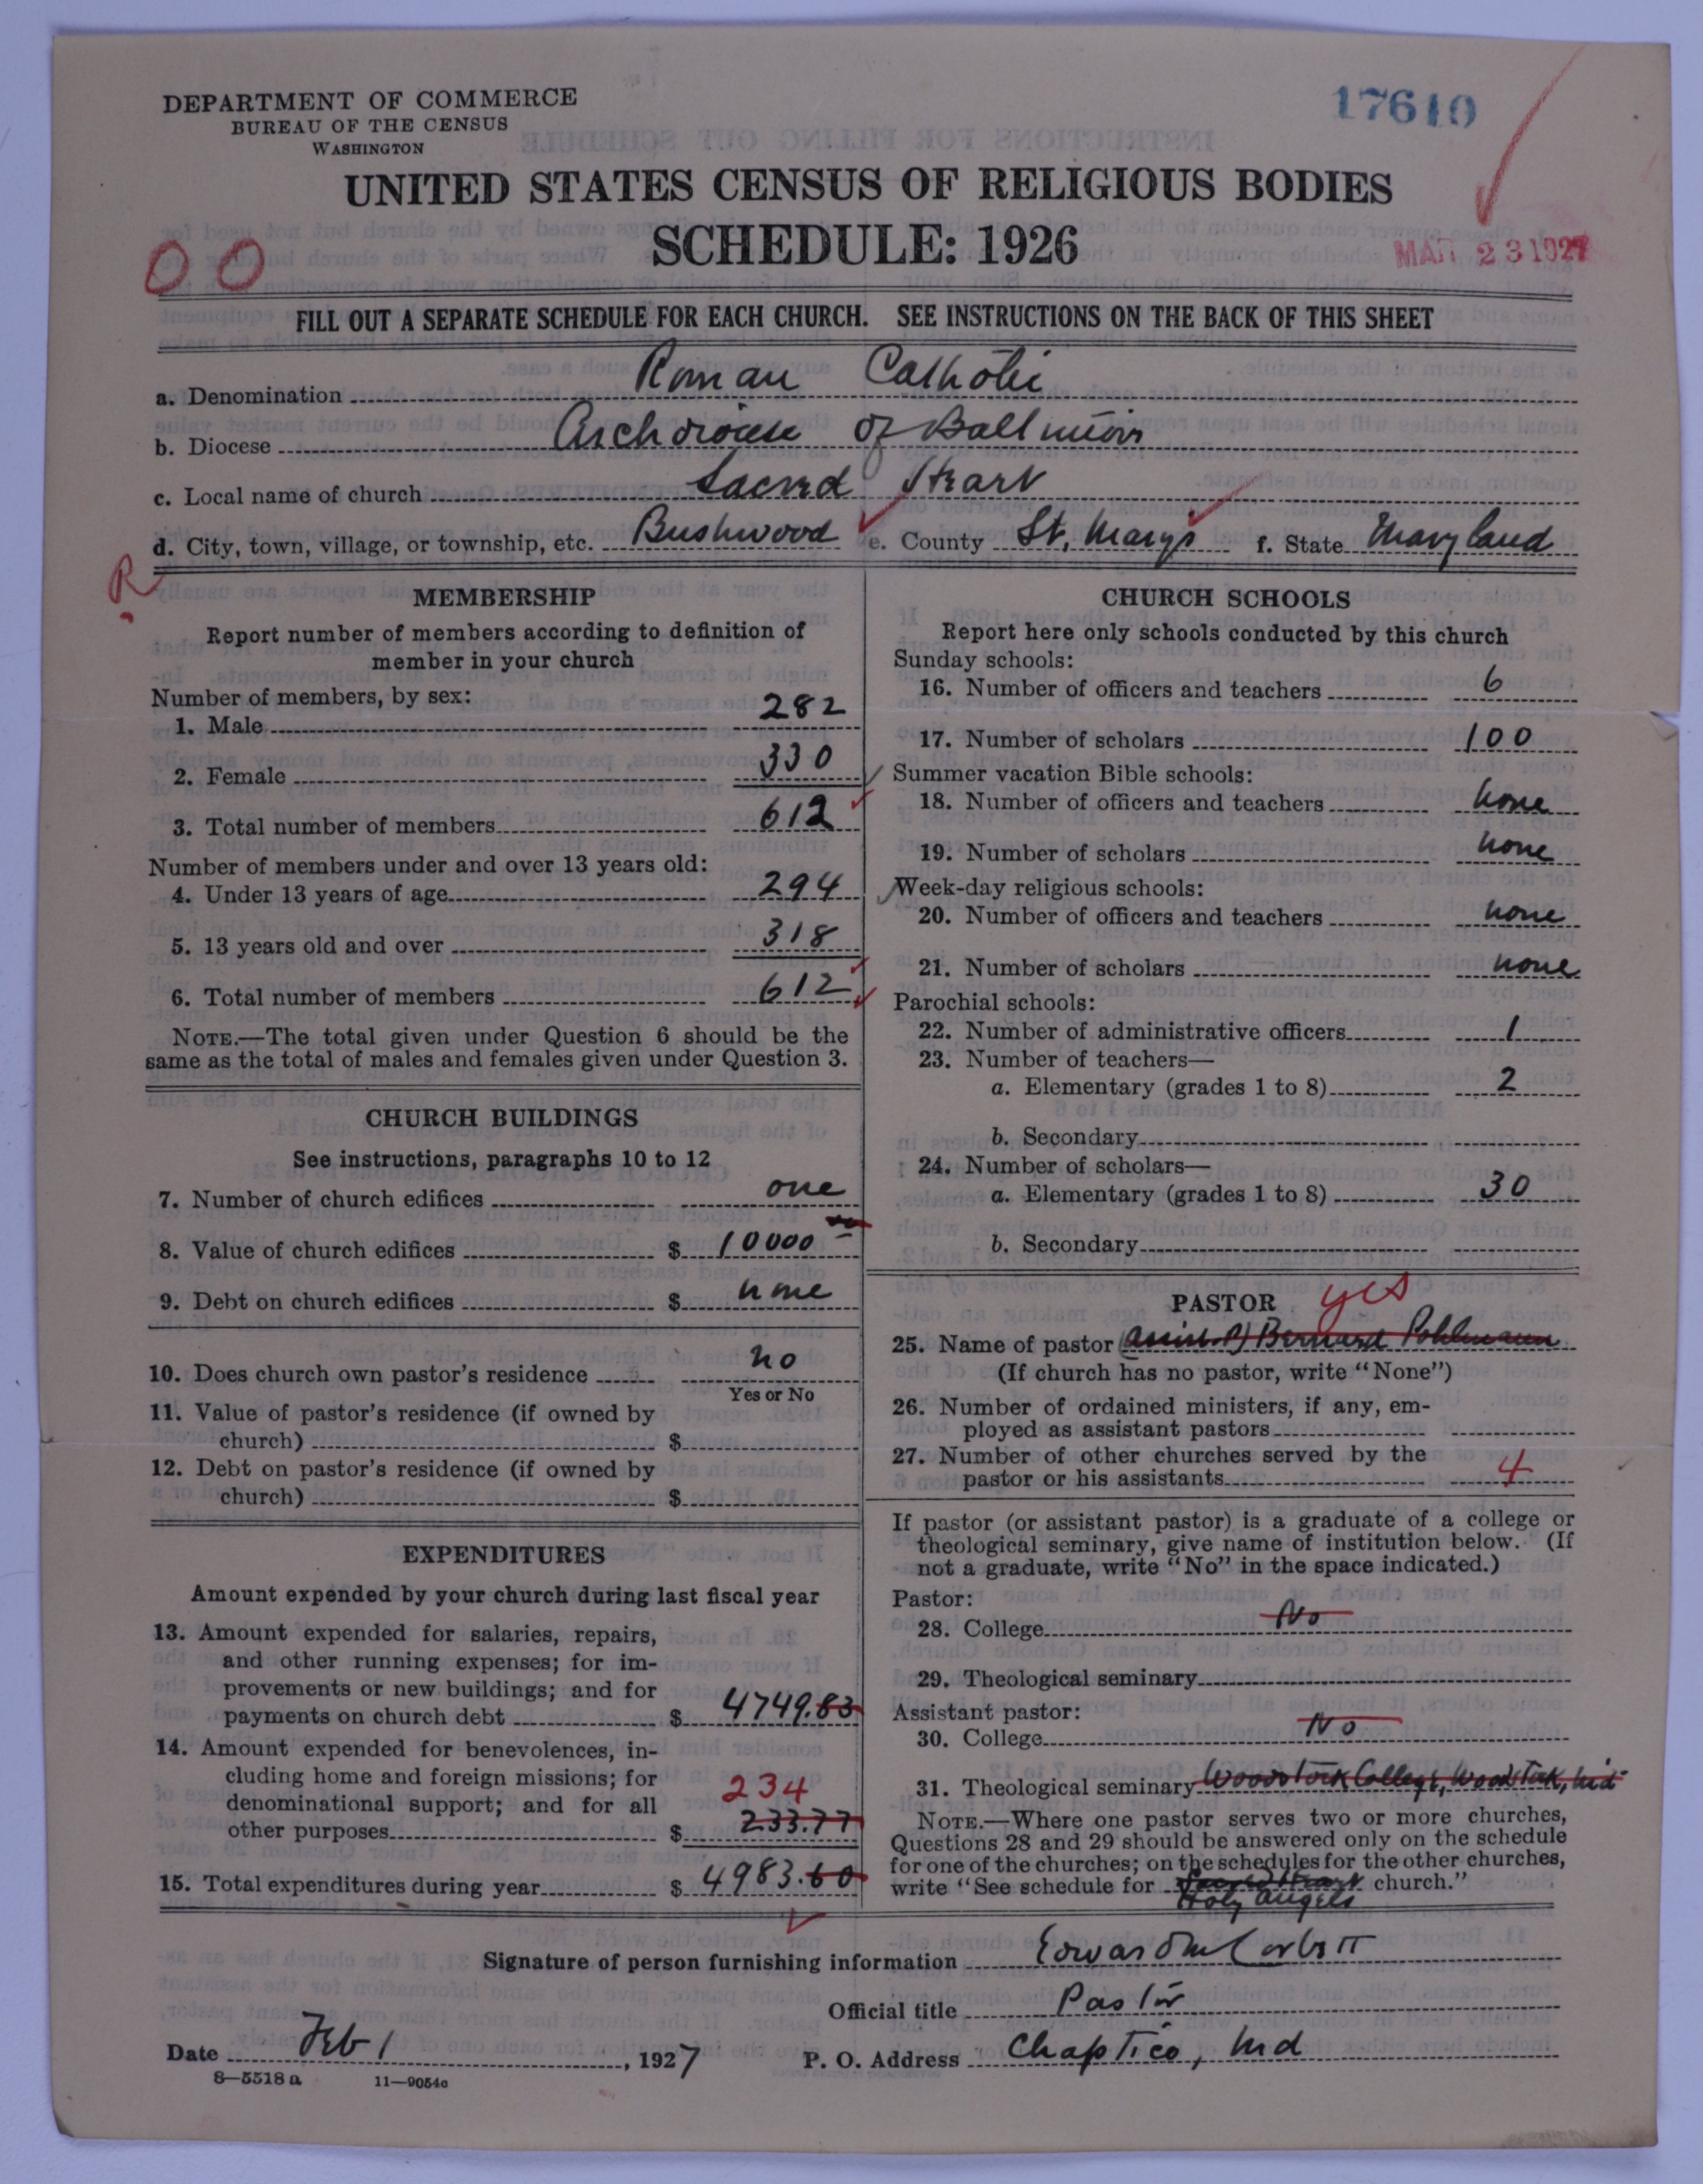 DEPARTMENT OF COMMERCE
BUREAU OF THE CENSUS
WASHINGTON
17610
UNITED STATES CENSUS OF RELIGIOUS BODIES
SCHEDULE: 1926
MAR 23 1927
00
FILL OUT A SEPARATE SCHEDULE FOR EACH CHURCH. SEE INSTRUCTIONS ON THE BACK OF THIS SHEET
a. Denomination Roman Catholic
b. Diocese Archdiocese of Baltimore
c. Local name of church Sacred Heart
d. City, town, village, or township, etc. Bushwood e. County St. Marys f. State Maryland
R
MEMBERSHIP
Report number of members according to definition of
member in your church
Number of members, by sex:
1. Male 282
2. Female 330
3. Total number of members 612
Number of members under and over 13 years old:
4. Under 13 years of age 294
5. 13 years old and over 318
6. Total number of members 612
NOTE.—The total given under Question 6 should be the
same as the total of males and females given under Question 3.
CHURCH BUILDINGS
See instructions, paragraphs 10 to 12
7. Number of church edifices one
8. Value of church edifices $ 10000
9. Debt on church edifices $ none
10. Does church own pastor's residence no
Yes or No
11. Value of pastor's residence (if owned by
church) $
12. Debt on pastor's residence (if owned by
church) $
EXPENDITURES
Amount expended by your church during last fiscal year
13. Amount expended for salaries, repairs,
and other running expenses; for im-
provements or new buildings; and for
payments on church debt $ 4749.83
14. Amount expended for benevolences, in-
cluding home and foreign missions; for
denominational support; and for all
234
other purposes $ 233.77
15. Total expenditures during year $ 4983.60
CHURCH SCHOOLS
Report here only schools conducted by this church
Sunday schools:
16. Number of officers and teachers 6
17. Number of scholars 100
Summer vacation Bible schools:
18. Number of officers and teachers none
19. Number of scholars none
Week-day religious schools:
20. Number of officers and teachers none
21. Number of scholars none
Parochial schools:
22. Number of administrative officers 1
23. Number of teachers—
a. Elementary (grades 1 to 8) 2
b. Secondary
24. Number of scholars—
a. Elementary (grades 1 to 8) 30
b. Secondary
PASTOR yes
25. Name of pastor (Assist. P) Bernard Pohlmann
(If church has no pastor, write "None")
26. Number of ordained ministers, if any, em-
ployed as assistant pastors
27. Number of other churches served by the
pastor or his assistants 4
If pastor (or assistant pastor) is a graduate of a college or
theological seminary, give name of institution below. (If
not a graduate, write "No" in the space indicated.)
Pastor:
28. College No
29. Theological seminary
Assistant pastor:
30. College No
31. Theological seminary Woodstock College, Woodstock, Md
NOTE.—Where one pastor serves two or more churches,
Questions 28 and 29 should be answered only on the schedule
for one of the churches; on the schedules for the other churches,
write "See schedule for Sacred Heart church."
Holy Angels
Signature of person furnishing information Edward M Corbett
Official title Pastor
Date Feb 1, 1927 P. O. Address Chaptico, Md
8—5518 a 11—9054a